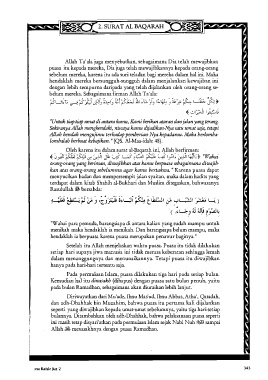 2. SURAT AL BAQARAH
Allah Ta'ala juga menyebutkan, sebagaimana Dia telah mewajibkan
puasa itu kepada mereka, Dia juga telah mewajibkannya kepada orang-orang
sebelum mereka, karena itu ada suri teladan bagi mereka dalam hal ini. Maka
hendaklah mereka bersungguh-sungguh dalam menjalankan kewajiban ini
dengan lebih sempurna daripada yang telah dijalankan oleh orang-orang se-
belum mereka. Sebagaimana firman Allah Ta'ala:
"Untuk tiap-tiap umat di antara kamu, Kami berikan aturan dan jalan yang terang.
Sekiranya Allah menghendaki, niscaya kamu dijadikan-Nya satu umat saja, tetapi
Allah hendak menguji kamu terhadap pemberian-Nya kepadamu. Maka berlomba-
lombalah berbuat kebajikan." (QS. Al-Maa-idah: 48).
Oleh karena itu dalam surat al-Baqarah ini, Allah berfirman:
"Wahai
orang-orang yang beriman, diwajibkan atas kamu berpuasa sebagaimana diwajib-
kan atas orang-orang sebelum kamu agar kamu bertakwa." Karena puasa dapat
menyucikan badan dan mempersempit jalan syaitan, maka dalam hadits yang
terdapat dalam kitab Shahih al-Bukhari dan Muslim disegaskan, bahwasanya
Rasulullah ﷺ bersabda:
يَا مَعْشَرَ الشَّبَابِ مَنِ اسْتَطَاعَ مِنْكُمُ الْبَاءَةَ فَلْيَتَزَوَّجْ، وَ مَنْ لَمْ يَسْتَطِعْ فَعَلَيْهِ
بِالصَّوْمِ فَإِنَّهُ لَهُ وِجَاءٌ.
"Wahai para pemuda, barangsiapa di antara kalian yang sudah mampu untuk
menikah maka hendaklah ia menikah. Dan barangsiapa belum mampu, maka
hendaklah ia berpuasa karena puasa merupakan penawar baginya."
Setelah itu Allah menjelaskan waktu puasa. Puasa itu tidak dilakukan
setiap hari supaya jiwa manusia ini tidak merasa keberatan sehingga lemah
dalam menanggungnya dan menunaikannya. Tetapi puasa itu diwajibkan
hanya pada hari-hari tertentu saja.
Pada permulaan Islam, puasa dilakukan tiga hari pada setiap bulan.
Kemudian hal itu dinasakh (dihapus) dengan puasa satu bulan penuh, yaitu
pada bulan Ramadhan, sebagaimana akan diuraikan lebih lanjut.
Diriwayatkan dari Mu'adz, Ibnu Mas'ud, Ibnu Abbas, Atha', Qatadah,
dan adh-Dhahhak bin Muzahim, bahwa puasa itu pertama kali dijalankan
seperti yang diwajibkan kepada umat-umat sebelumnya, yaitu tiga hari setiap
bulannya. Ditambahkan oleh adh-Dhahhak, bahwa pelaksanaan puasa seperti
ini masih tetap disyari'atkan pada permulaan Islam sejak Nabi Nuh sampai
Allah ﷻ menasakhnya dengan puasa Ramadhan.
Katsir Juz 2
343